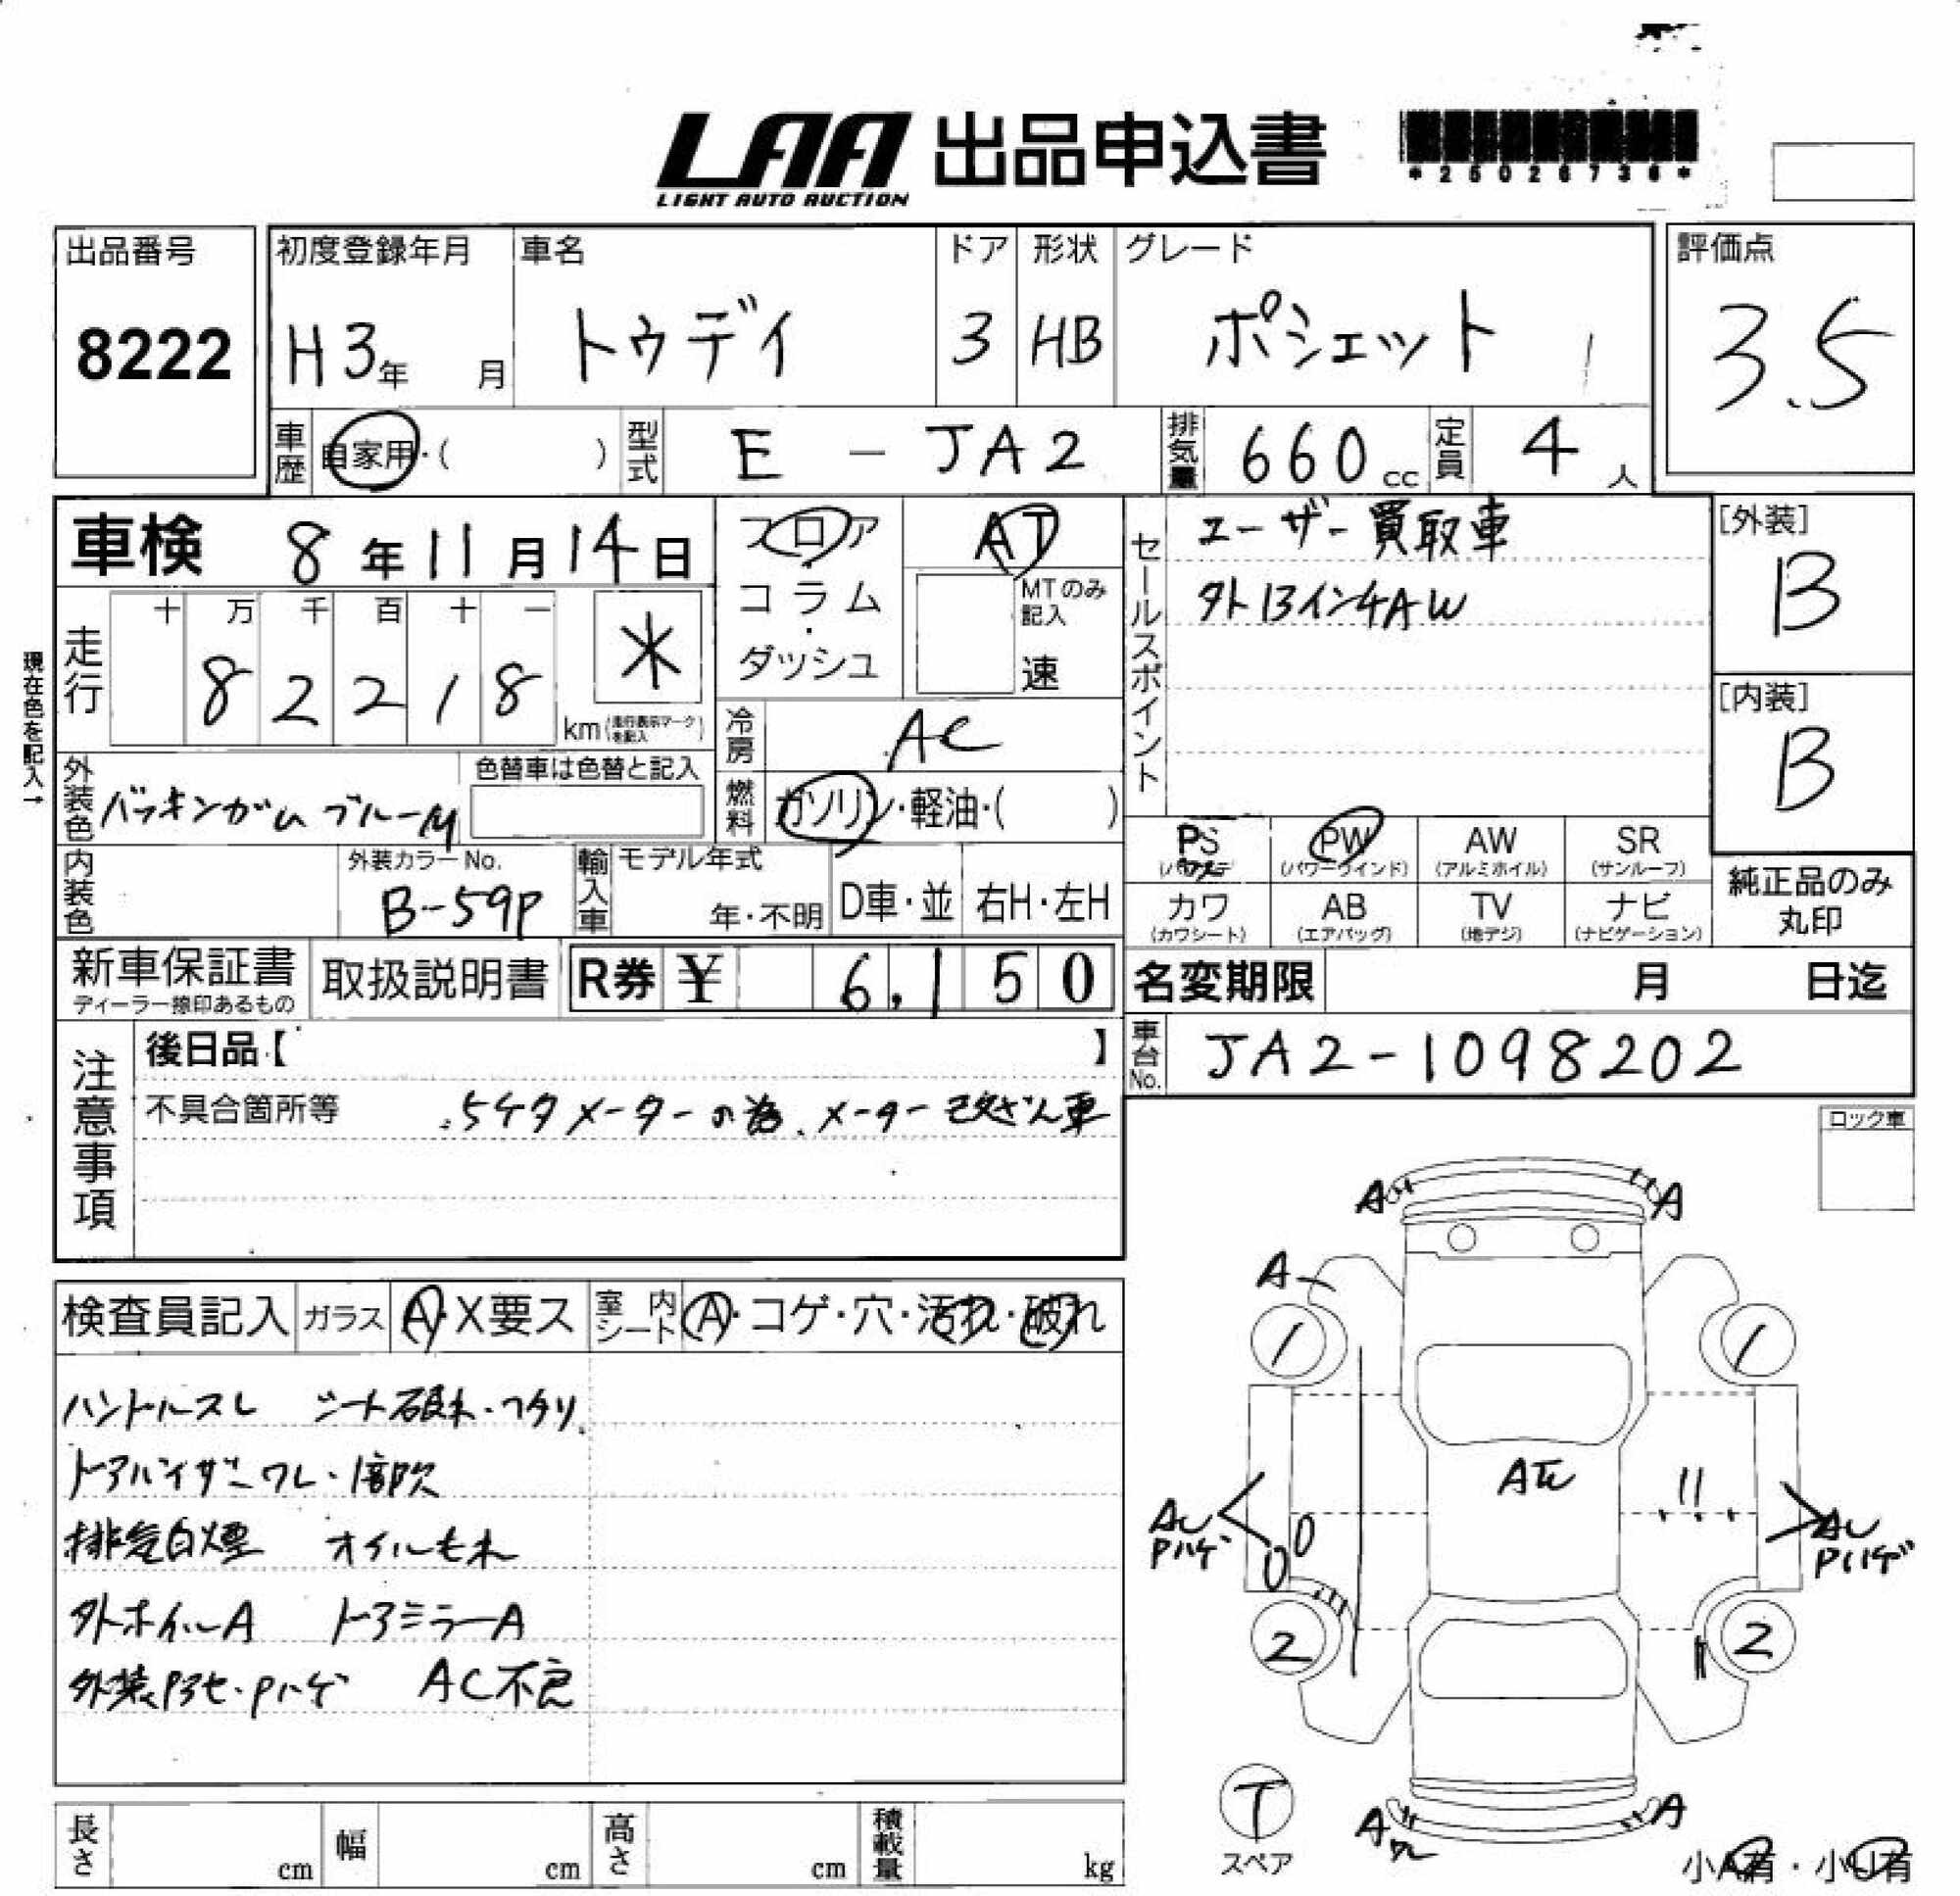 LAA 出品申込書
LIGHT AUTO AUCTION
*25026736*
出品番号
8222
初度登録年月
H3年 月
車名
トゥデイ
ドア
3
形状
HB
グレード
ポシェット
評価点
3.5
車歴 自家用・( )
型式 E - JA2
排気量 660cc
定員 4人
車検 8年11月14日
走行
十 万 千 百 十 一
8 2 2 1 8 km (走行表示マークを記入)
*
現在色を記入→
外装色 バッキンガムブルーM
色替車は色替と記入
内装色
外装カラーNo.
B-59P
フロア
コラム
・
ダッシュ
AT
MTのみ記入
速
冷房 AC
燃料 ガソリン・軽油・( )
輸入車
モデル年式
年・不明
D車・並
右H・左H
セールスポイント
ユーザー買取車
外13インチAW
[外装]
B
[内装]
B
PS
PW (パワーウインド)
AW (アルミホイル)
SR (サンルーフ)
カワ (カワシート)
AB (エアバッグ)
TV (地デジ)
ナビ (ナビゲーション)
純正品のみ
丸印
新車保証書
ディーラー捺印あるもの
取扱説明書
R券 ¥ 6,150
名変期限 月 日迄
車台No. JA2-1098202
注意事項
後日品【 】
不具合箇所等 5ケタメーターの為、メーター改ざん車
ロック車
検査員記入
ガラス A・X要ス
室内シート A・コゲ・穴・汚れ・破れ
ハンドルスレ シート破れ・ヘタリ
ドアバイザーワレ・1部欠
排気白煙 オイルモレ
外ホイルA ドアミラーA
外装P アセ・Pハゲ AC不良
A
A
A
1
1
AU
Pハゲ
AU
Pハゲ
2
2
T
スペア
A
ワレ
A
小A有・小U有
長さ cm
幅 cm
高さ cm
積載量 kg